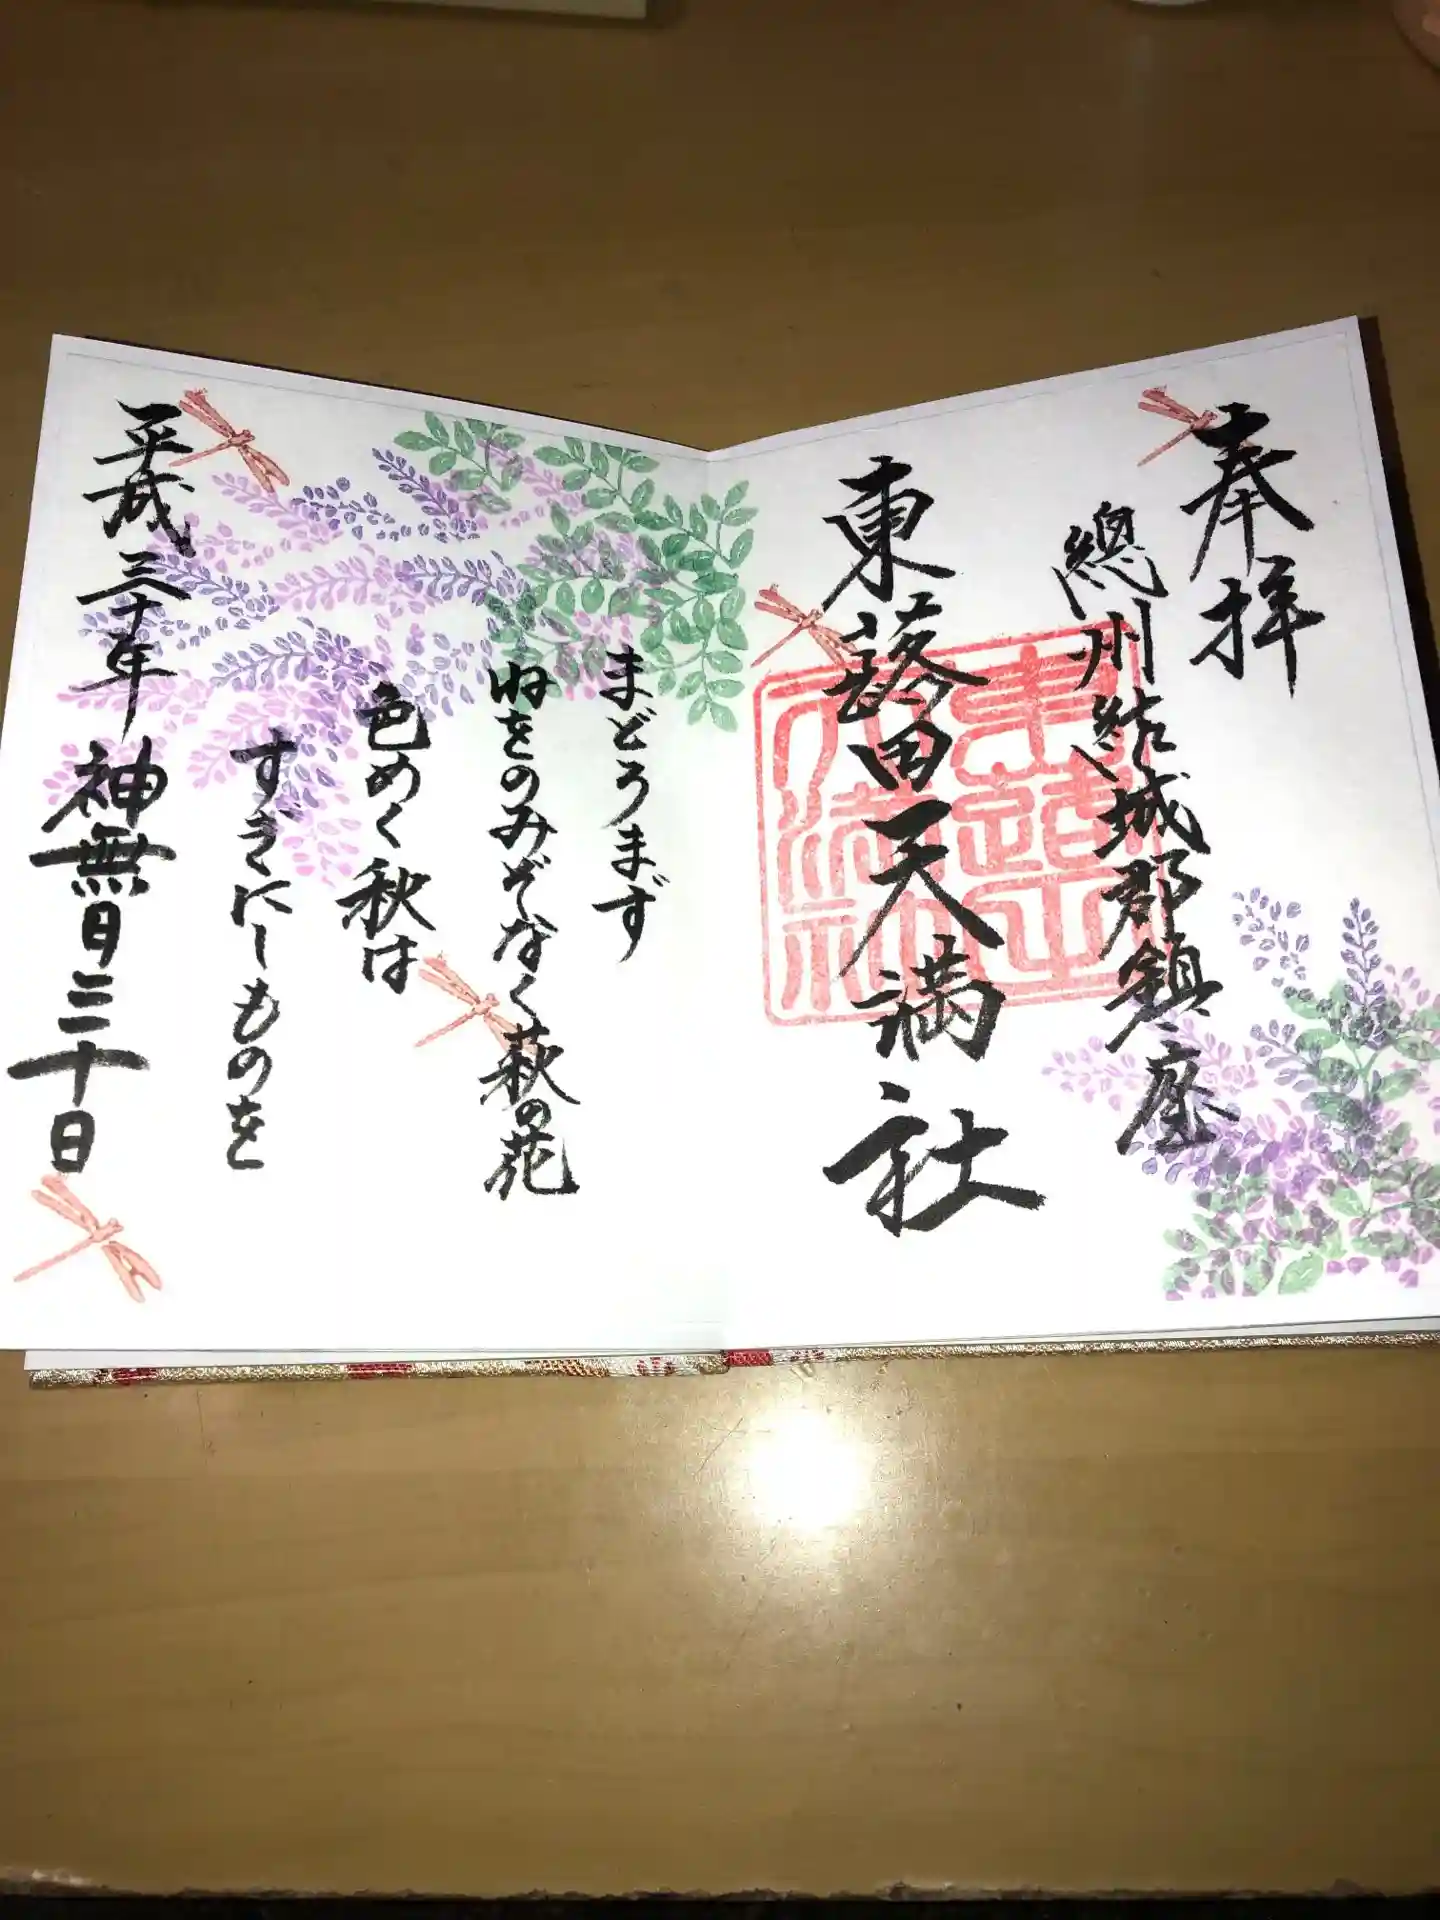 奉拝
總州結城郡鎮座
東蕗田天満社
まどろまず
ねをのみぞなく萩の花
色めく秋は
すぎにしものを
平成三十年 神無月三十日